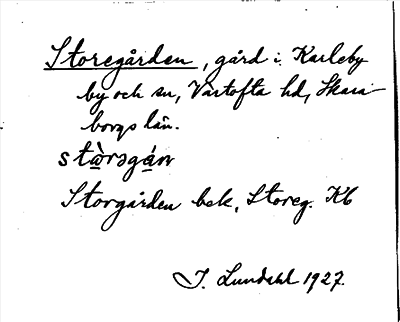 Storegården, gård i Karleby
by och sn, Vartofta hd, Skara-
borgs län.
stὰrəgάn
Storgården bsk, Storeg. Kb
J. Lundahl 1927.